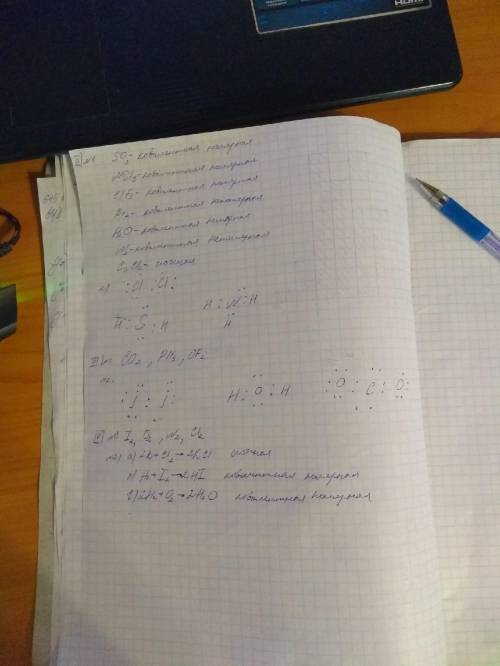 HDMI
II) №1 SO2 - ковалентная полярная
ковалентная полярная
ClF3 - ковалентная полярная
Br2 - ковалентная неполярная
H2O - ковалентная полярная
N2 - ковалентная неполярная
ионная
: Cl : Cl :
H : N : H
H
H : S : H
III) №1 CO2, PH3, OF2
№2.
: J : J :
H : O : H
: O : C : O :
№1 I2, O2, N2, Cl2
№2) a) 2K + Cl2 → 2KCl ионная
H2 + I2 → 2HI ковалентная полярная
2H2 + O2 → 2H2O ковалентная полярная